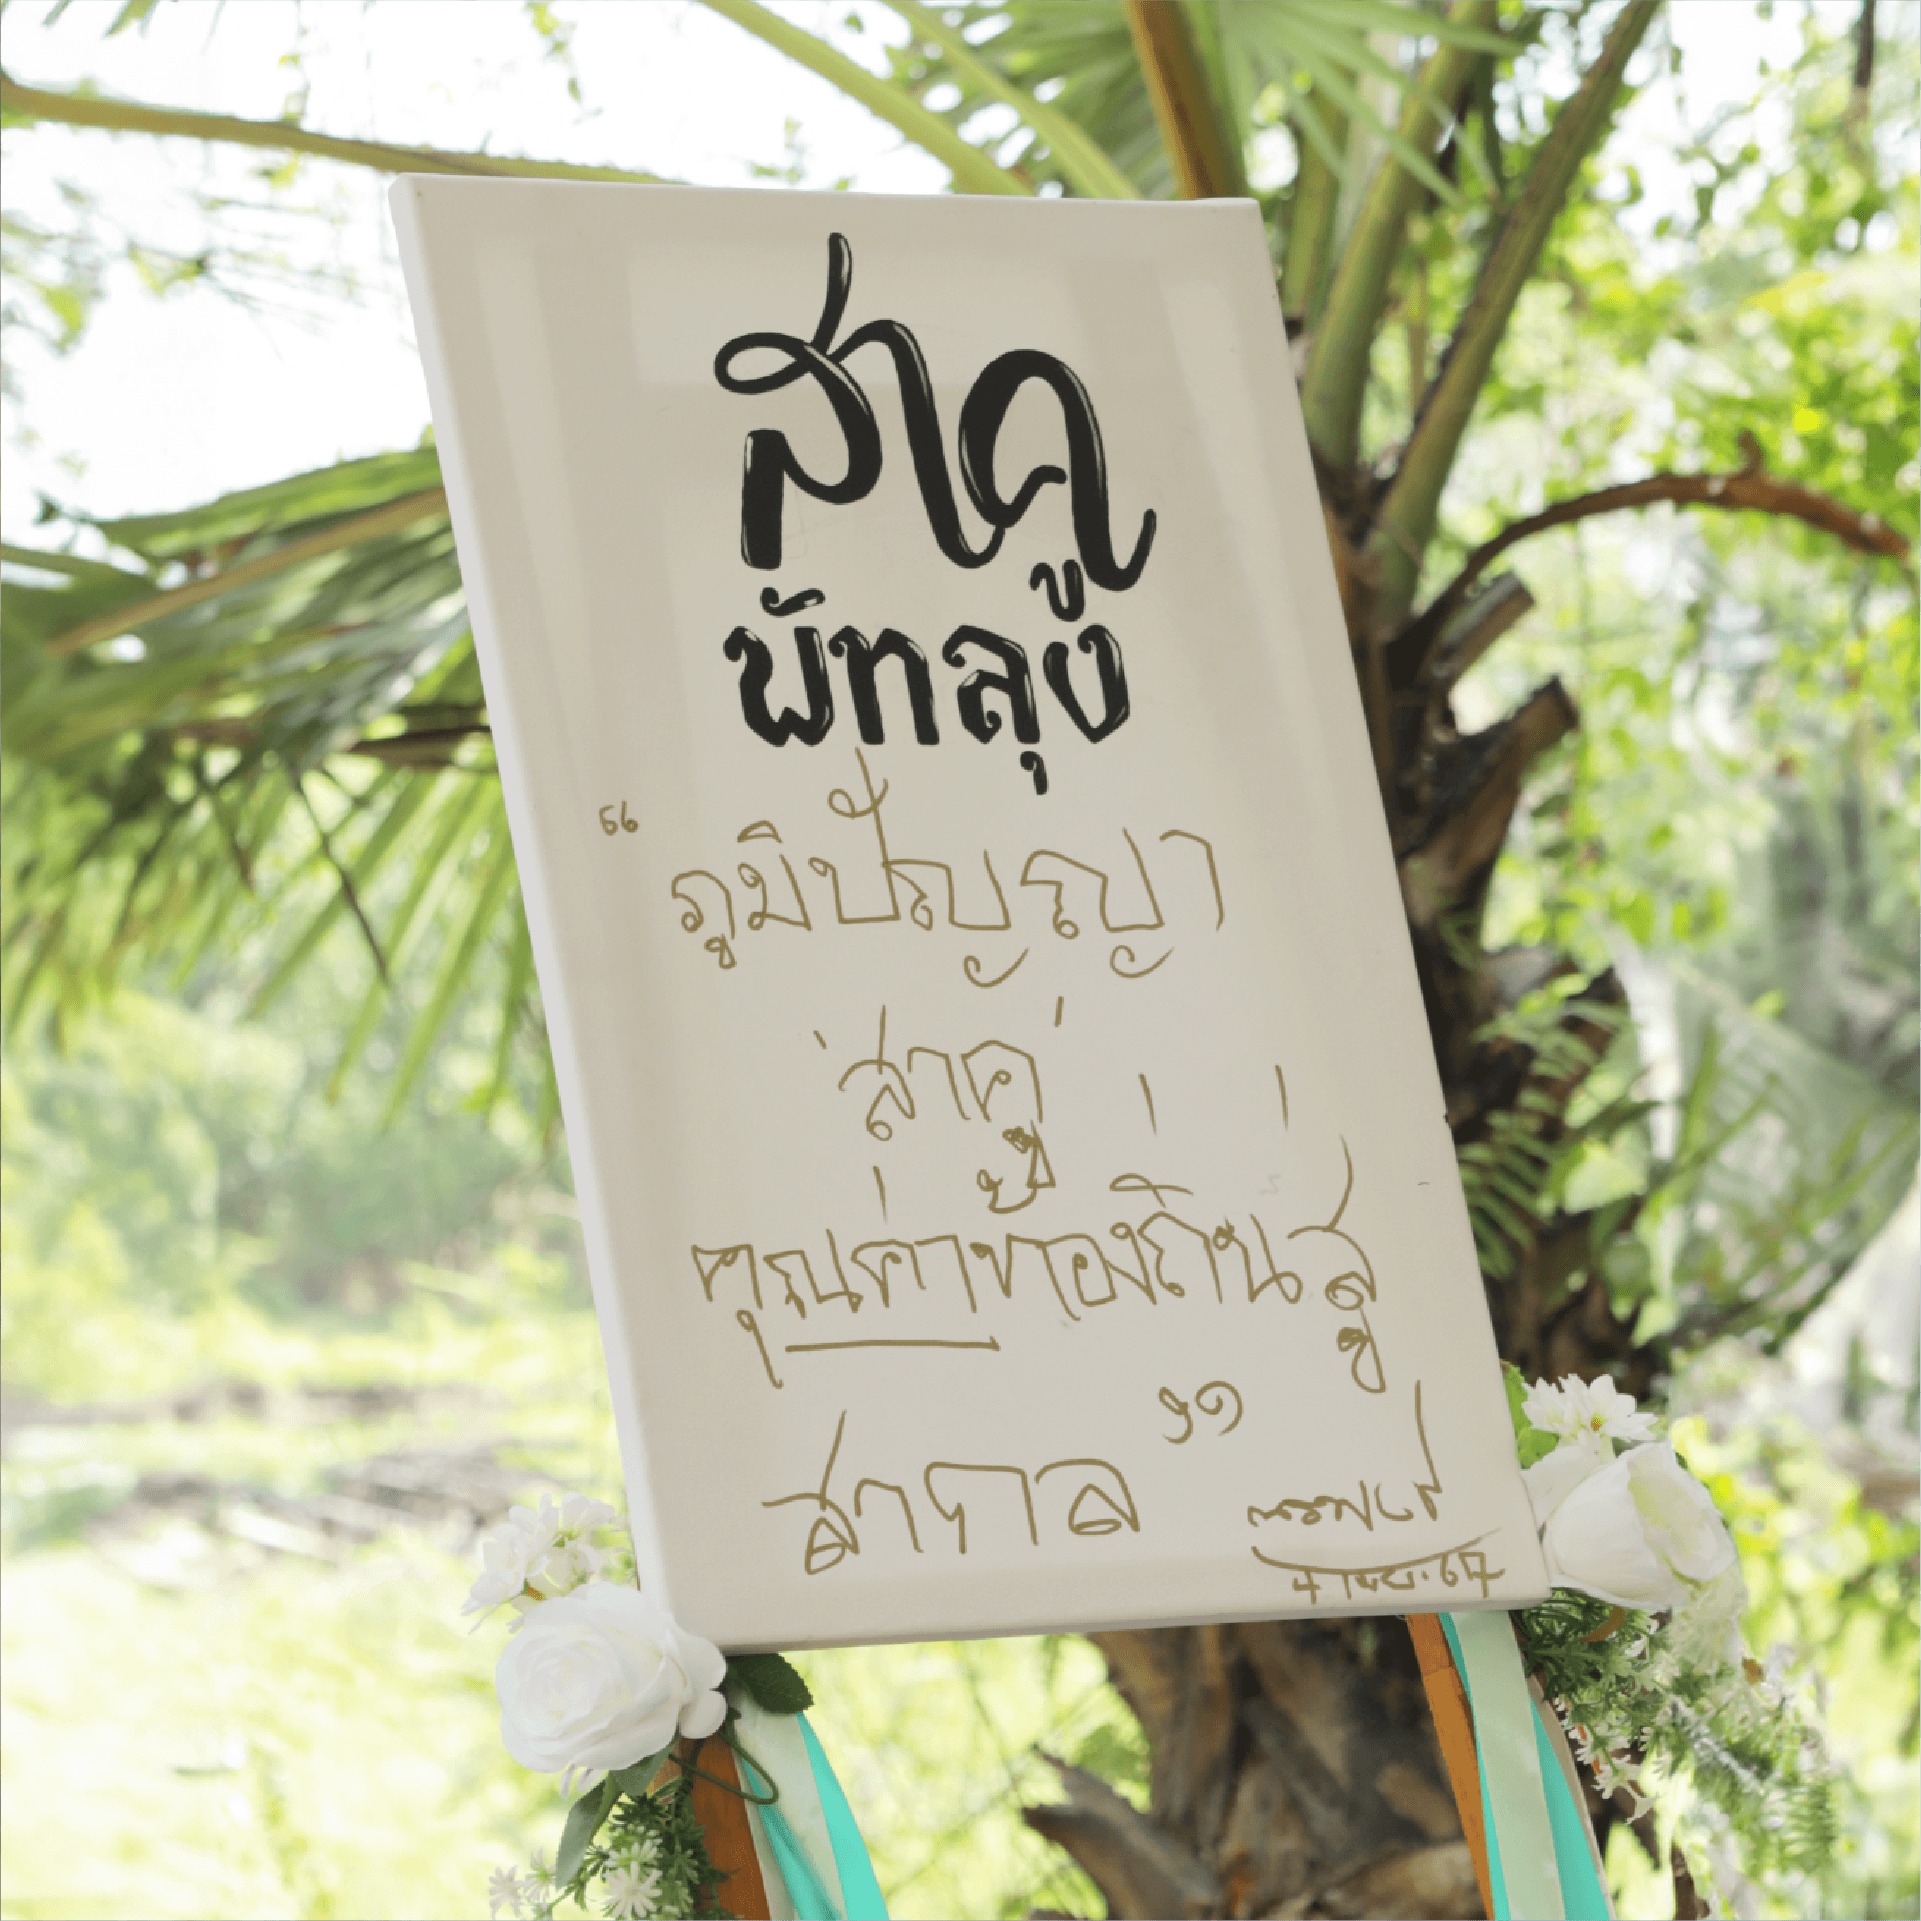 สาคู
พัทลุง
“ภูมิปัญญา
'สาคู'
คุณค่าของถิ่นสู่
สากล”
4 เม.ย. 67